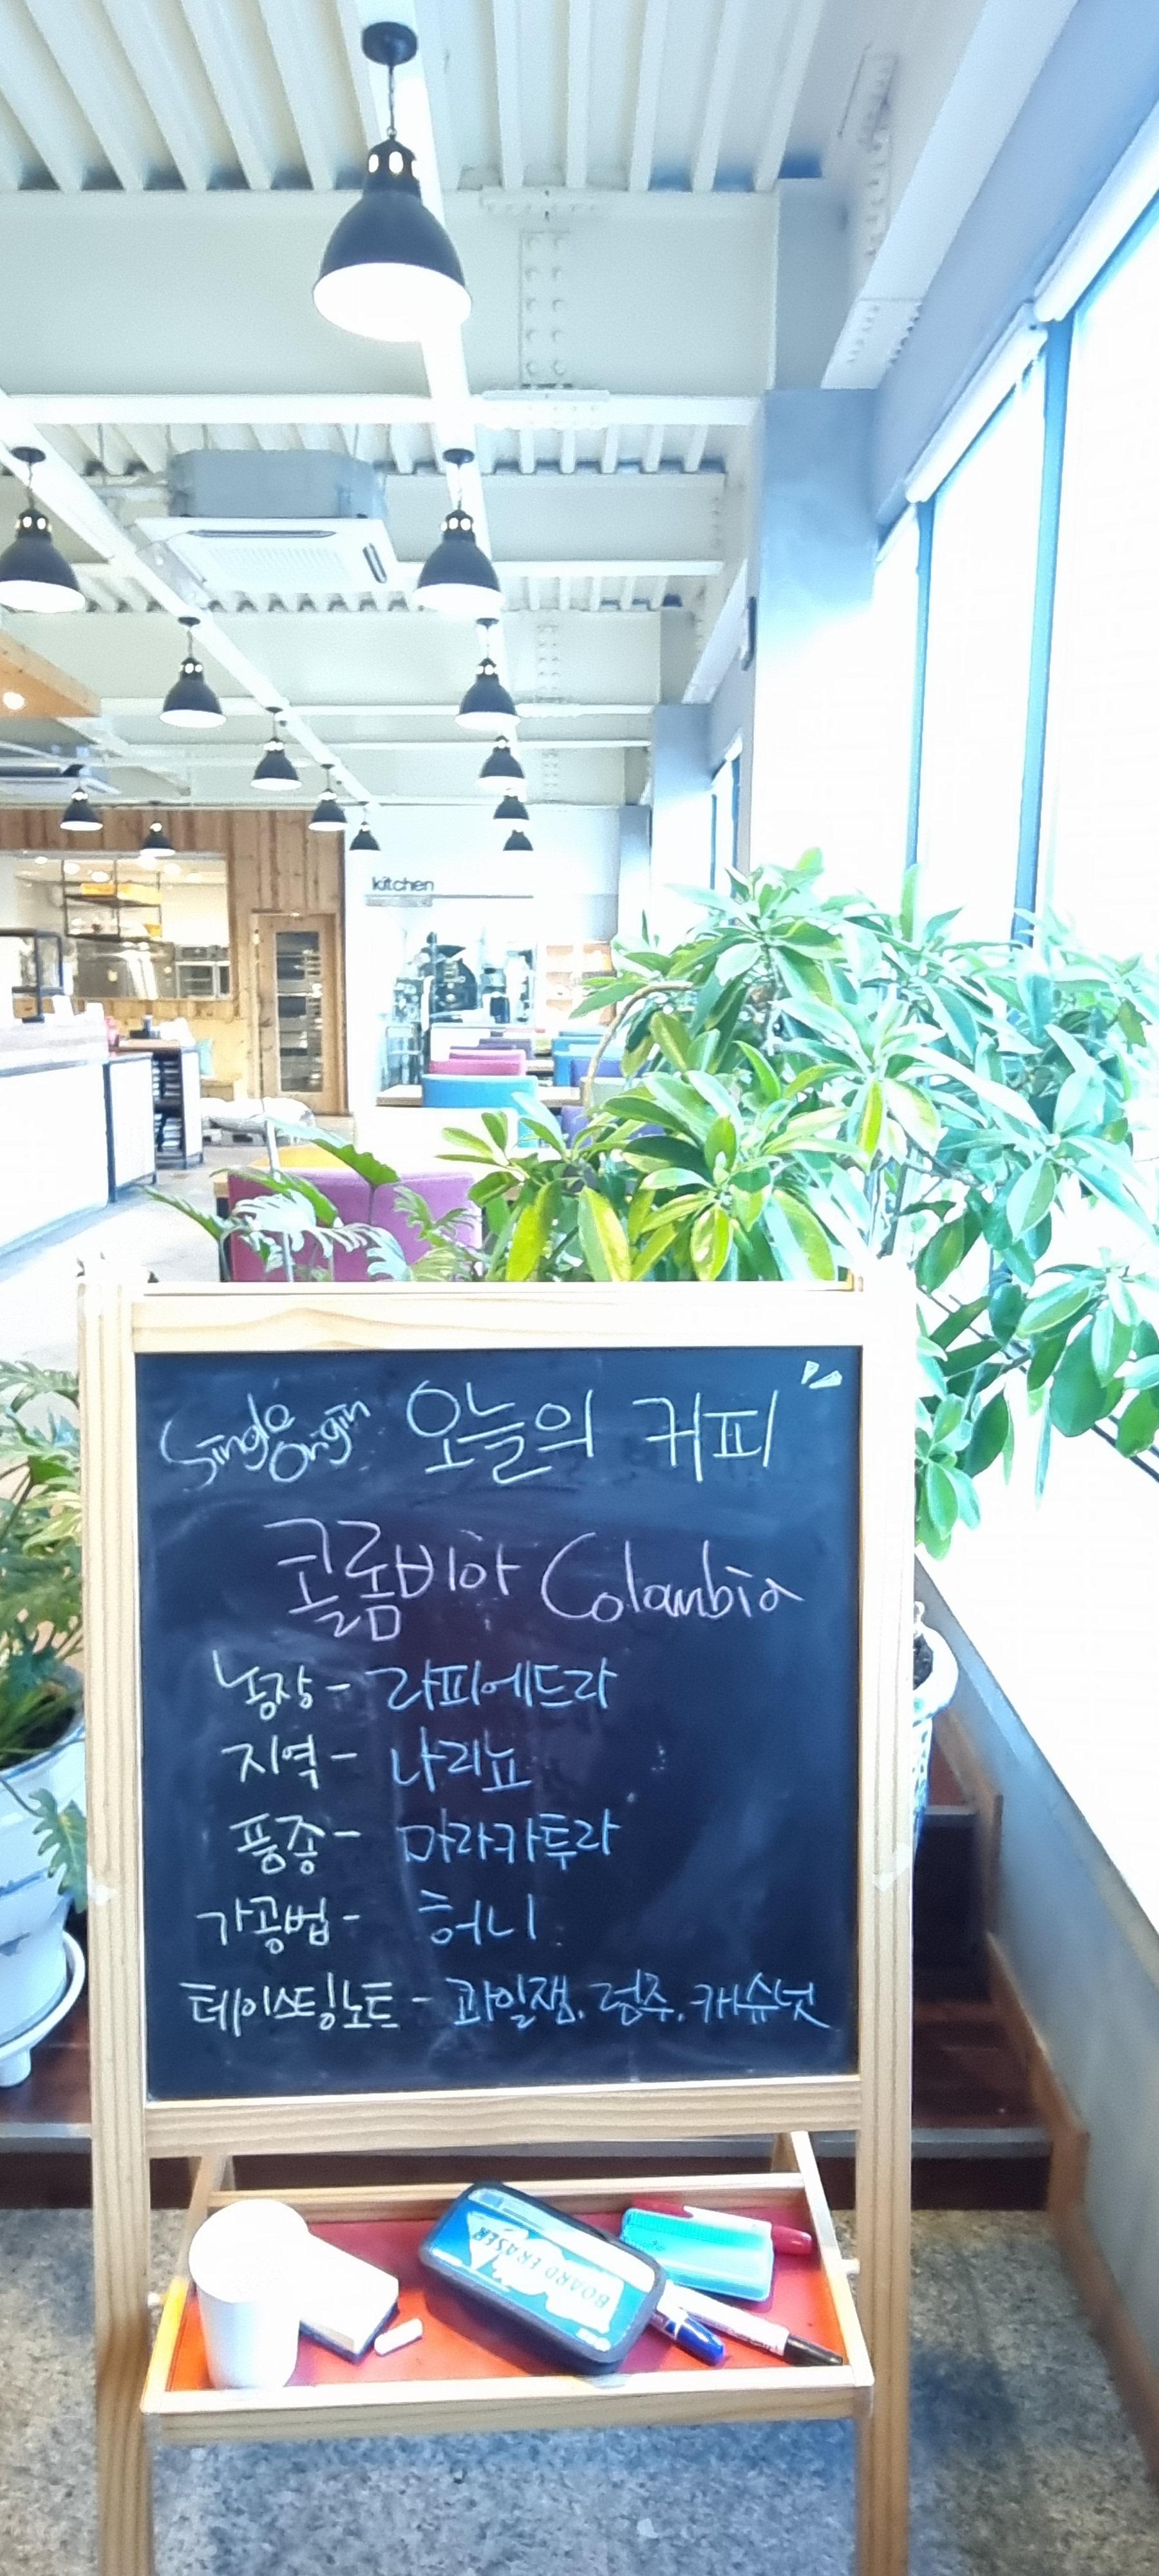 kitchen
Single Origin 오늘의 커피
콜롬비아 Colombia
농장 - 라피에드라
지역 - 나리뇨
품종 - 마라카투라
가공법 - 허니
테이스팅노트 - 과일잼, 청주, 캐슈넛
BOARD ERASER